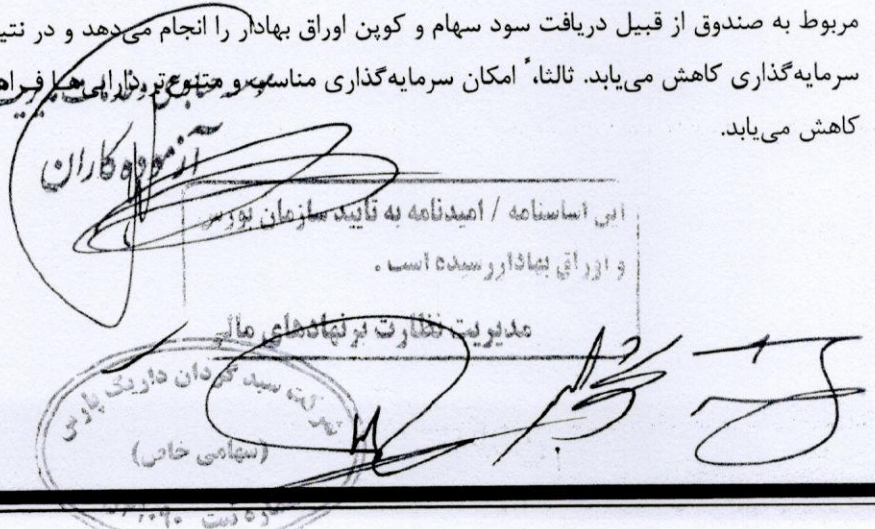 مربوط به صندوق از قبیل دریافت سود سهام و کوپن اوراق بهادار را انجام می‌دهد و در
سرمایه‌گذاری کاهش می‌یابد. ثالثا، امکان سرمایه‌گذاری مناسب و متنوع‌تر دارایی‌ها
کاهش می‌یابد.
آزموده کاران
این اساسنامه / امیدنامه به تایید سازمان بورس
و اوراق بهادار رسیده است .
مدیریت نظارت بر نهادهای مالی
شرکت سبد گردان داریک پارس
(سهامی خاص)
شماره ثبت